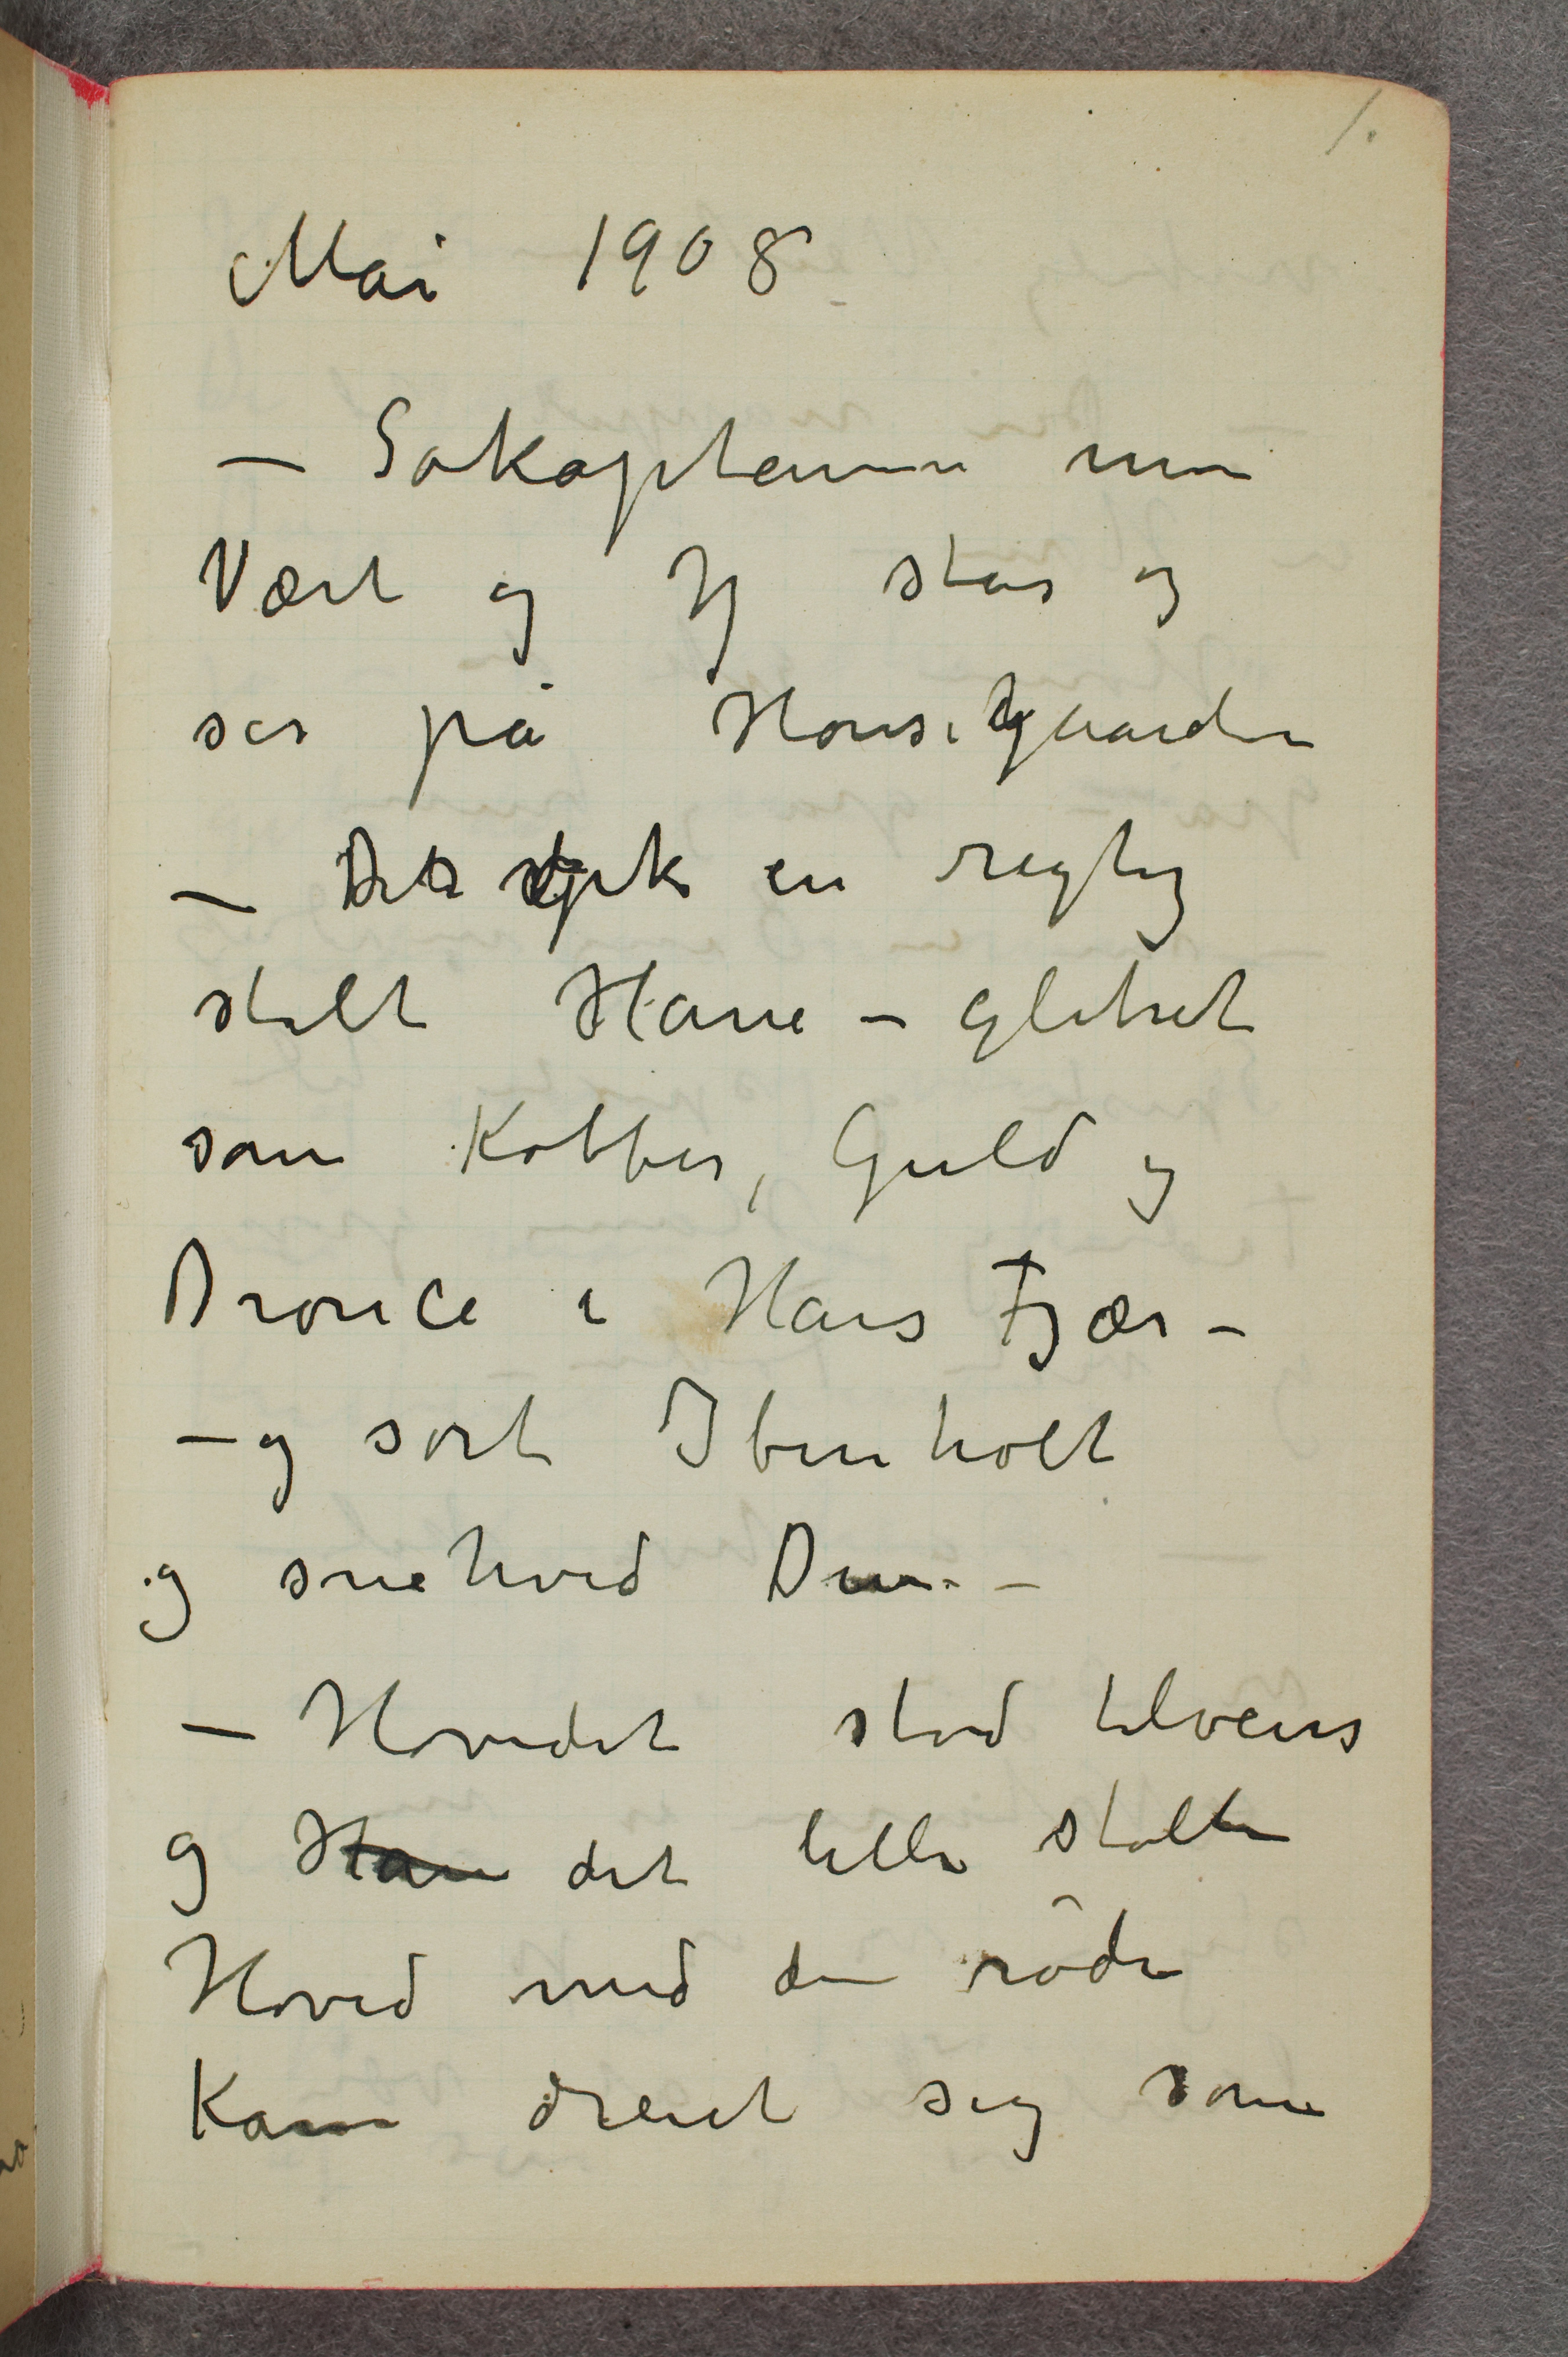 1.
Mai 1908
– Søkapteinen min
Vært og Jg står og
ser på Hønsegaarden
– Det gik en regtig
stolt Hane – glitret
som Kobber, Guld og
Bronce i Hans Fjær –
– og sort Ibenholt
og snehvid Dun –
– Hovedet stod tilveirs
og Han det lille stolte
Hoved med den røde
Kam dreiet sig som